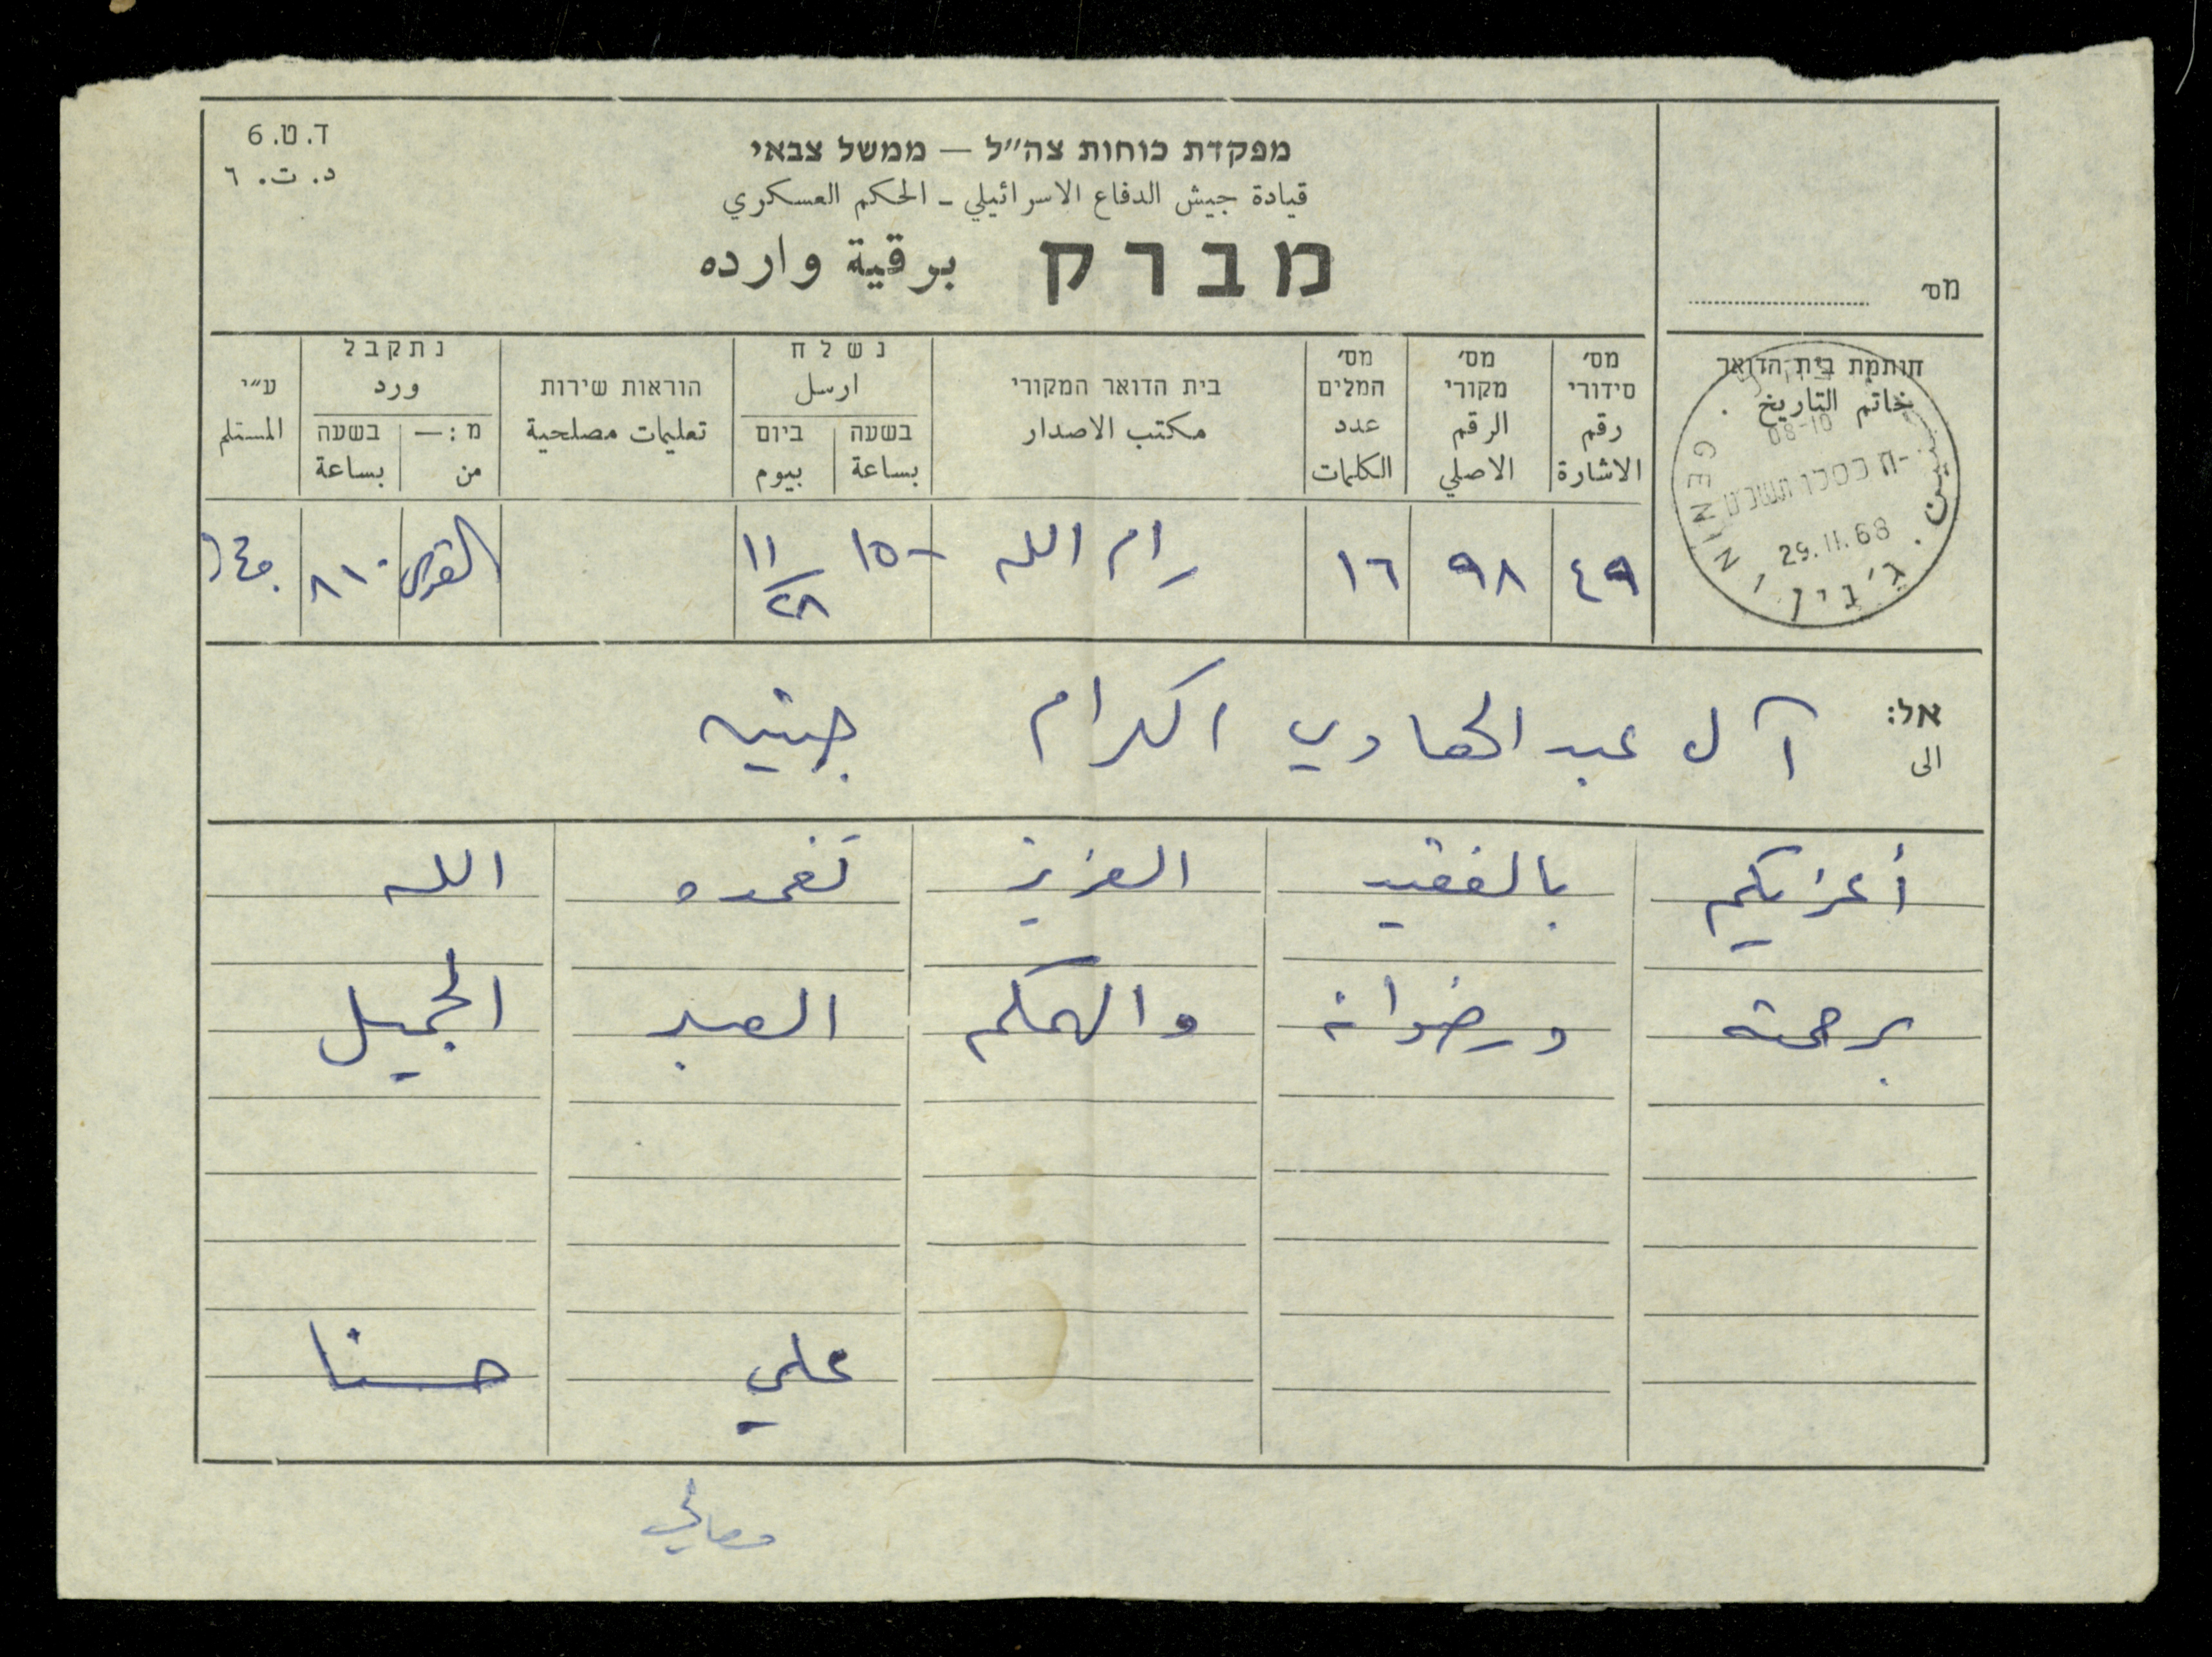 ד.ט.6
د. ت. ٦
מפקדת כוחות צה״ל — ממשל צבאי
قيادة جيش الدفاع الاسرائيلي ـ الحكم العسكري
מברק برقية وارده
מס׳
חותמת בית הדואר
خاتم التاريخ
GENIN ג׳נין جنين
08-10
ח כסלו תשכ״ט
29.11.68
מס׳ סידורי
رقم الاشارة
מס׳ מקורי
الرقم الاصلي
מס׳ המלים
عدد الكلمات
בית הדואר המקורי
مكتب الاصدار
נשלח
ارسل
בשעה ביום
بساعة بيوم
הוראות שירות
تعليمات مصلحية
נתקבל
ورد
מ:— בשעה
من بساعة
ע״י
المستلم
٤٩ ٩٨ ١٦ رام الله ١٥٠٠ ١١/٢٨ ٨١٠
אל:
الى
آل عبد الهادي الكرام جنين
أعزيكم بالفقيد العزيز تغمده الله
برحمته ورضوانه والهمكم الصبر الجميل
علي حسنا